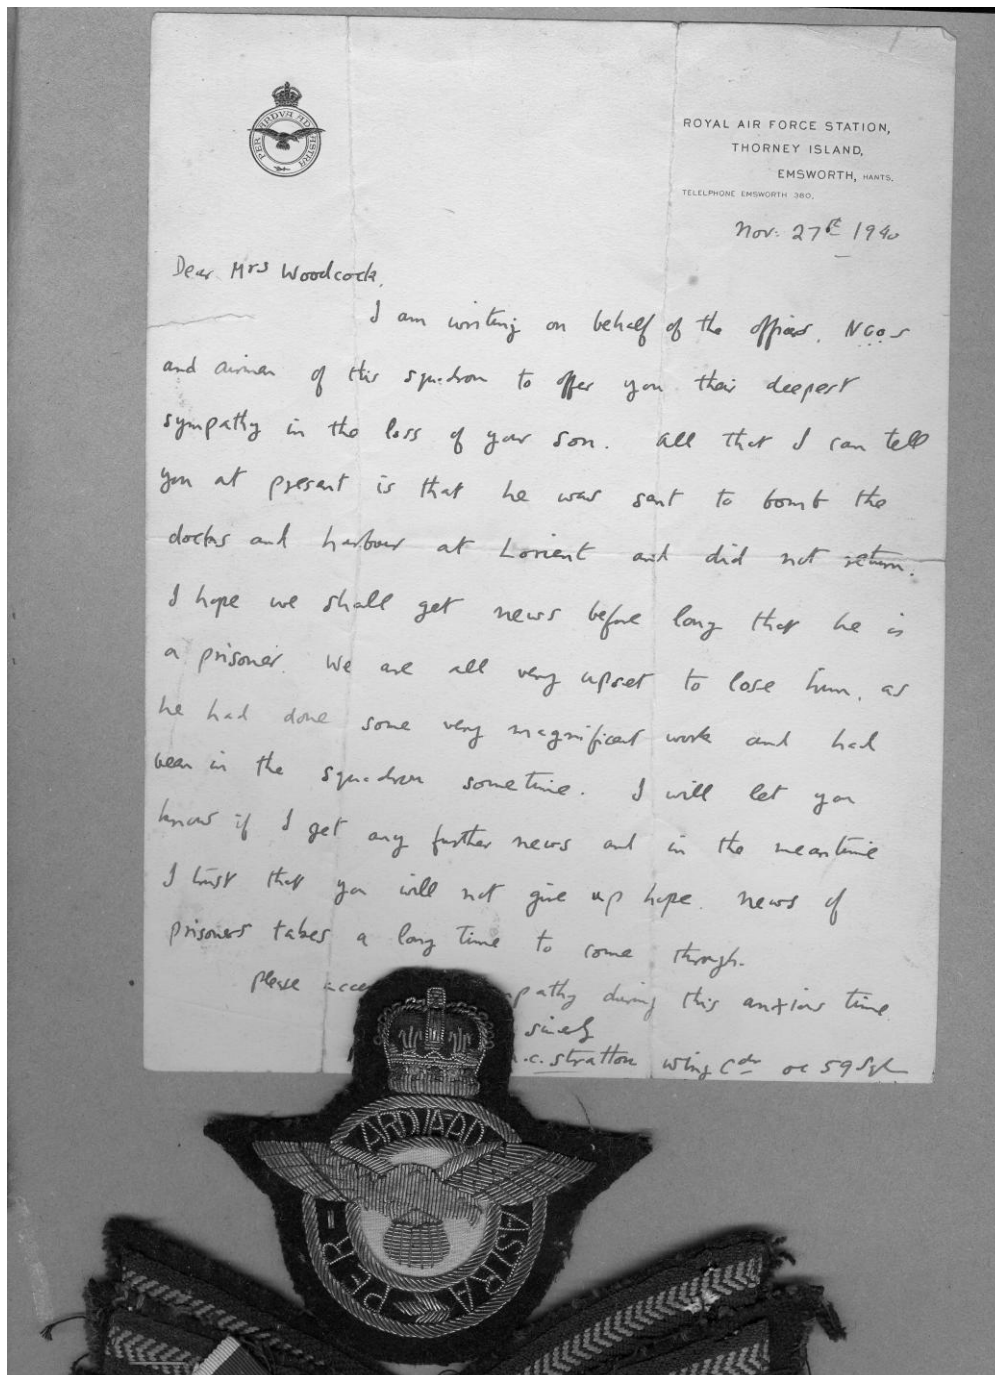 PER ARDVA AD ASTRA
ROYAL AIR FORCE STATION,
THORNEY ISLAND,
EMSWORTH, HANTS.
TELELPHONE EMSWORTH 380.
Nov: 27th 1940
Dear Mrs Woodcock,
I am writing on behalf of the officers, NCOs
and airmen of this squadron to offer you their deepest
sympathy in the loss of your son. All that I can tell
you at present is that he was sent to bomb the
docks and harbour at Lorient and did not return.
I hope we shall get news before long that he is
a prisoner. We are all very upset to lose him, as
he had done some very magnificent work and had
been in the squadron sometime. I will let you
know if I get any further news and in the meantime
I trust that you will not give up hope. News of
prisoners takes a long time to come through.
Please during this anxious time
.C. Stratton Wing Cdr oc 59 Sqn
PER ARDVA AD ASTRA